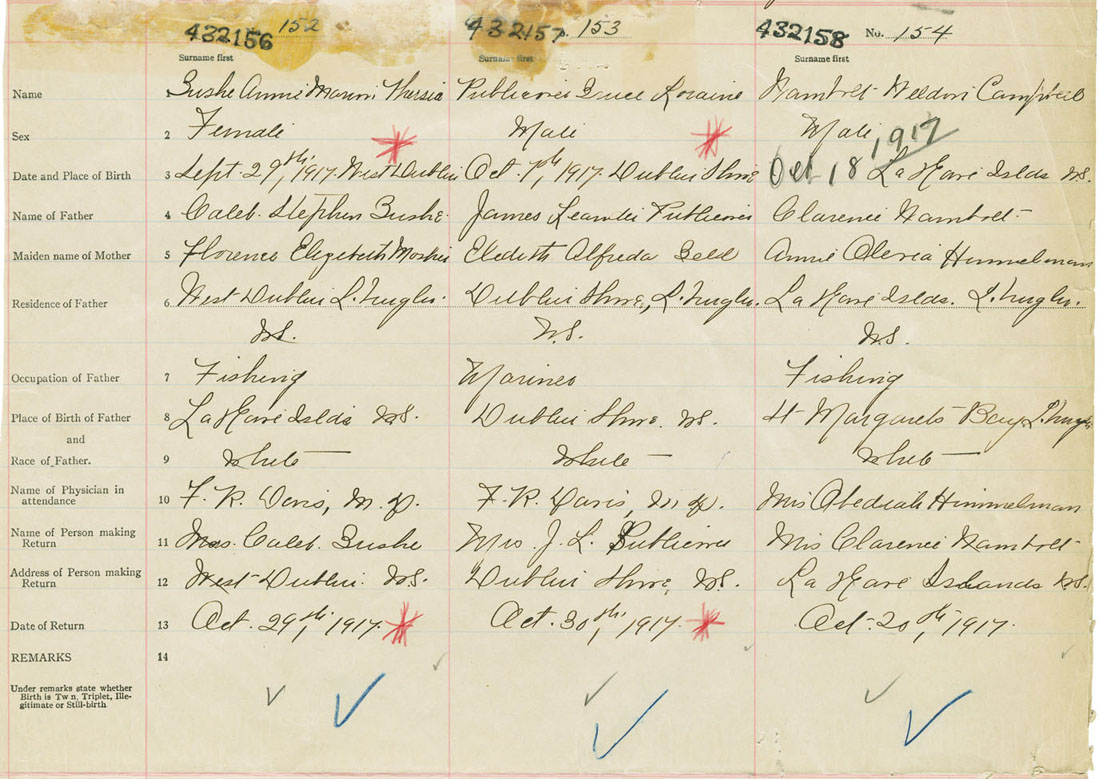 432156 152 432157 153 432158 No. 154
Surname first Surname first Surname first
Name Bushe Annie Publicover Bruce Loraine Rambolt Weldon Campbell
Sex 2 Female Male Male
1917
Date and Place of Birth 3 Sept. 29th, 1917. West Dublin Oct. 7th, 1917. Dublin Shore Oct 18 La Have Islds N.S.
Name of Father 4 Caleb. Stephen Bushe. James Leander Publicover Clarence Rambolt
Maiden name of Mother 5 Florence Elizabeth Alfreda Bell Annie Himmelman
Residence of Father 6 West Dublin L. Dublin Shore, L. La Have Islds. L.
N.S. N.S. N.S.
Occupation of Father 7 Fishing Mariner Fishing
Place of Birth of Father 8 La Have Islds N.S. Dublin Shore. N.S. St Margarets Bay
and
Race of Father. 9 White White White
Name of Physician in
attendance 10 F. R. Davis, M.D. F. R. Davis, M.D. Mrs Obediah Himmelman
Name of Person making
Return 11 Mrs. Caleb. Bushe Mrs. J. L. Publicover Mrs Clarence Rambolt
Address of Person making
Return 12 West Dublin. N.S. Dublin Shore, N.S. La Have Islands N.S.
Date of Return 13 Oct. 29th, 1917. Oct. 30th, 1917. Oct. 20th, 1917.
REMARKS 14
Under remarks state whether
Birth is Twn, Triplet, Ille-
gitimate or Still-birth